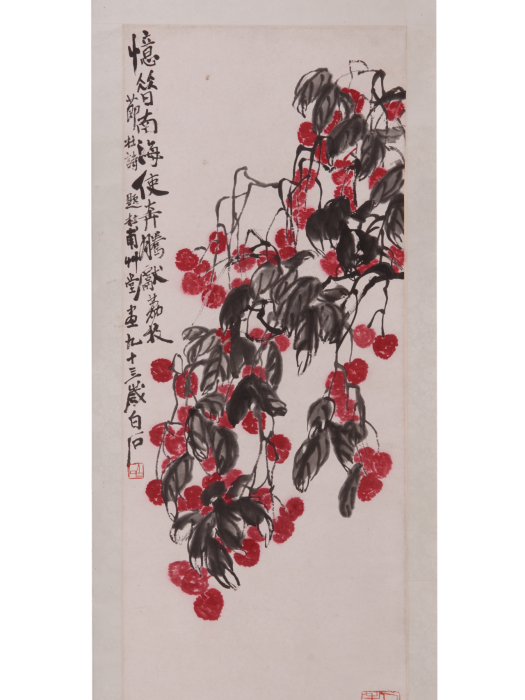 憶昔南海使奔騰獻荔枝
節杜詩題於甫艸堂畫九十三歲白石